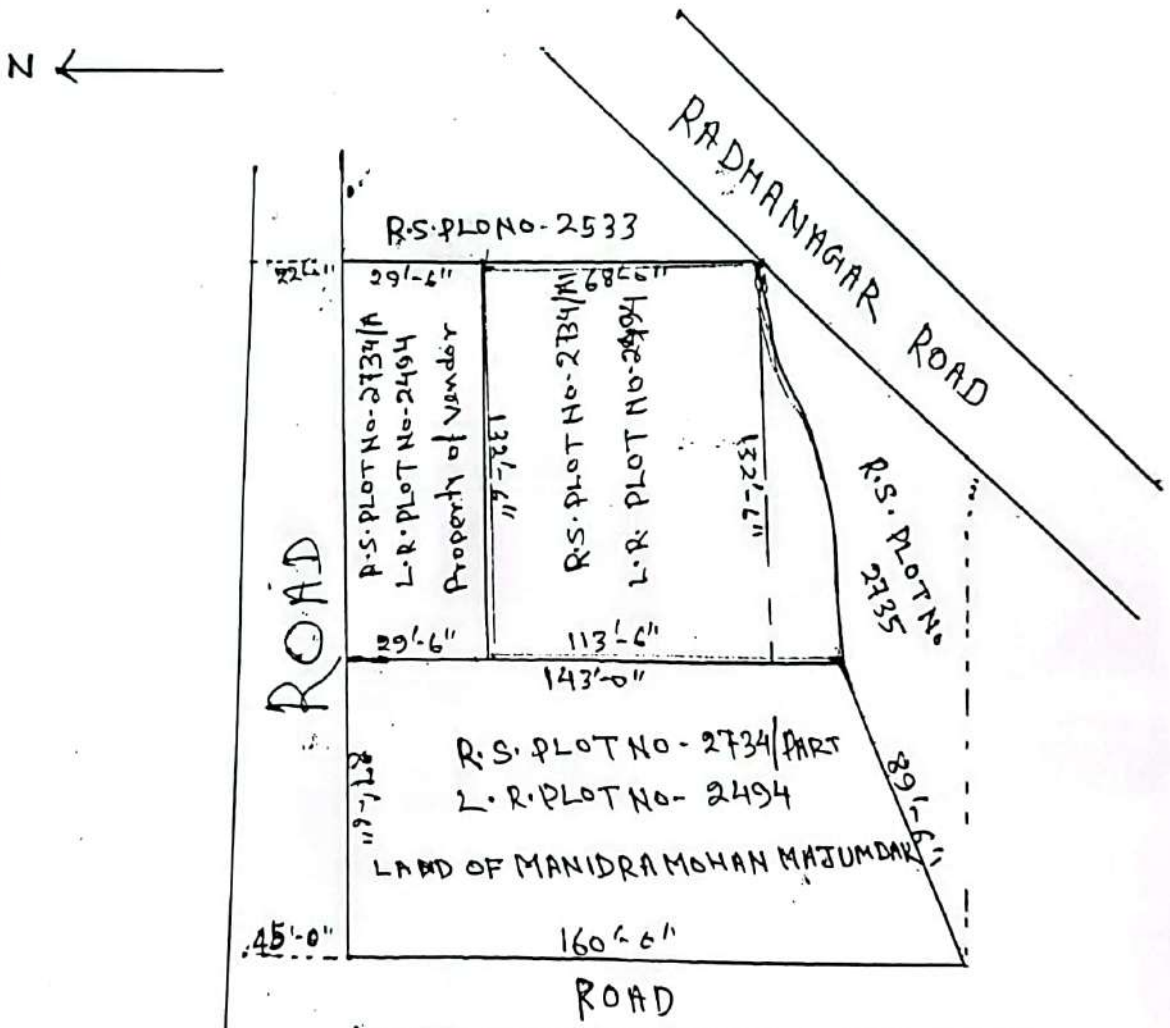 N
RADHANAGAR ROAD
R.S.PLONO-2533
22'-6"
29'-6"
68'-0"
R.S.PLOTNO-2734/A
L.R.PLOTNO-2494
Property of Vendor
132'-6"
R.S.PLOTNO-2734/A1
L.R. PLOT NO-2494
132'-6"
R.S. PLOT NO
2735
ROAD
29'-6"
113'-6"
143'-0"
87'-6"
R.S. PLOT NO - 2734/PART
L.R.PLOT NO- 2494
LAND OF MANIDRA MOHAN MAJUMDAR
89'-6"
45'-0"
160'-6"
ROAD